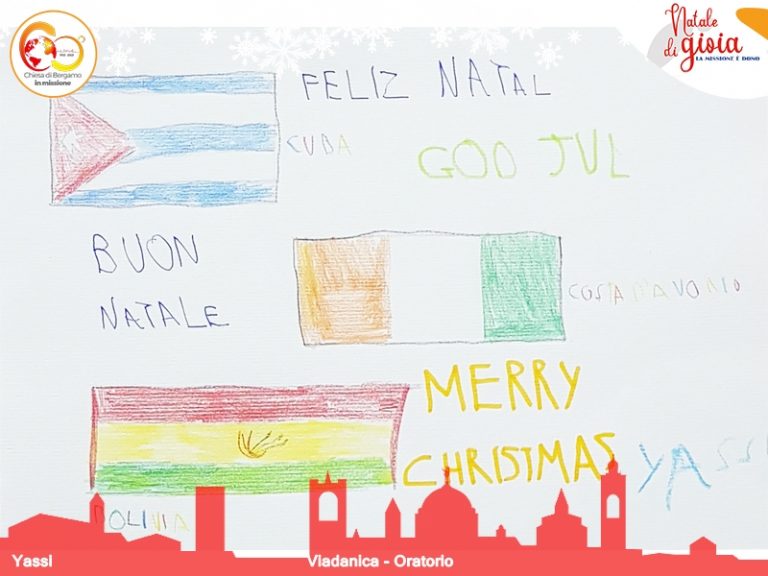 Chiesa di Bergamo
in missione
Natale
di gioia
LA MISSIONE È DONO
FELIZ NATAL
CUBA
GOD JUL
BUON
NATALE
COSTA D'AVORIO
MERRY
CHRISTMAS
YASSI
BOLIVIA
Yassi
Viadanica - Oratorio